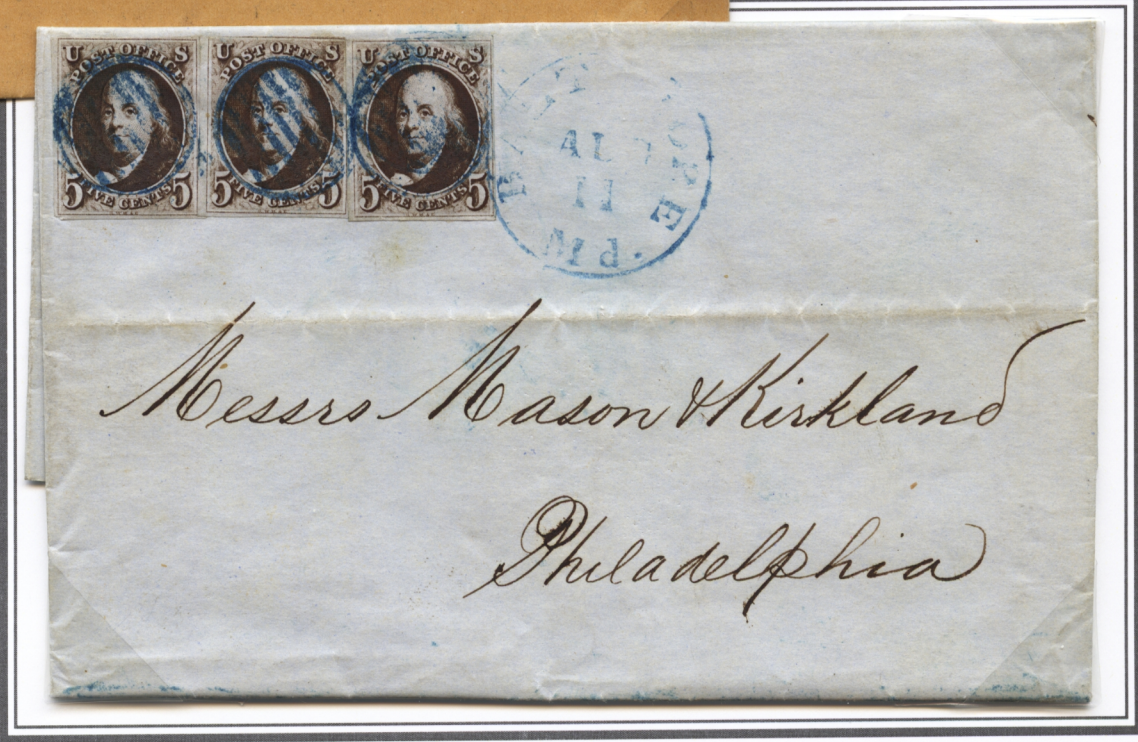 U S
POST OFFICE
5 FIVE CENTS 5
U S
POST OFFICE
5 FIVE CENTS 5
U S
POST OFFICE
5 FIVE CENTS 5
11
Messrs Mason & Kirkland
Philadelphia